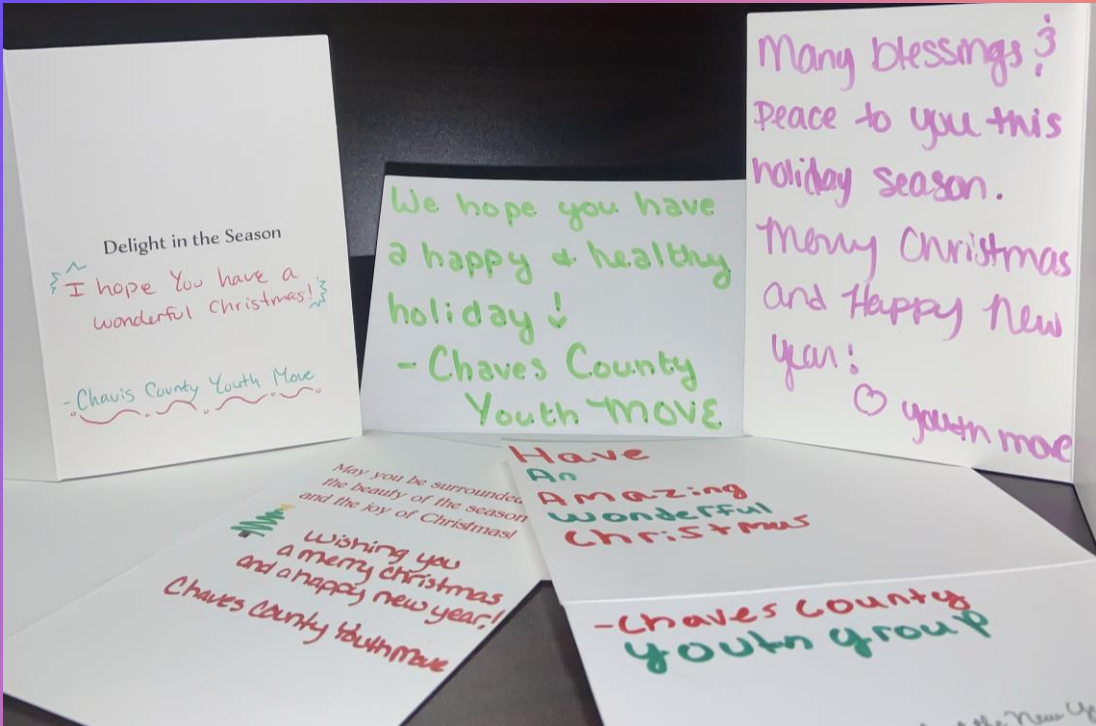 Delight in the Season
I hope You have a
wonderful Christmas!
-Chavis County Youth Move
We hope you have
a happy & healthy
holiday!
- Chaves County
Youth MOVE
Many blessings &
Peace to you this
holiday season.
Merry Christmas
and Happy New
year!
♡ youth move
May you be surrounded
the beauty of the season
and the joy of Christmas!
Wishing you
a merry christmas
and a happy new year!
Chaves County Youth Move
Have
An
Amazing
Wonderful
Christmas
-Chaves County
Youth Group
the New